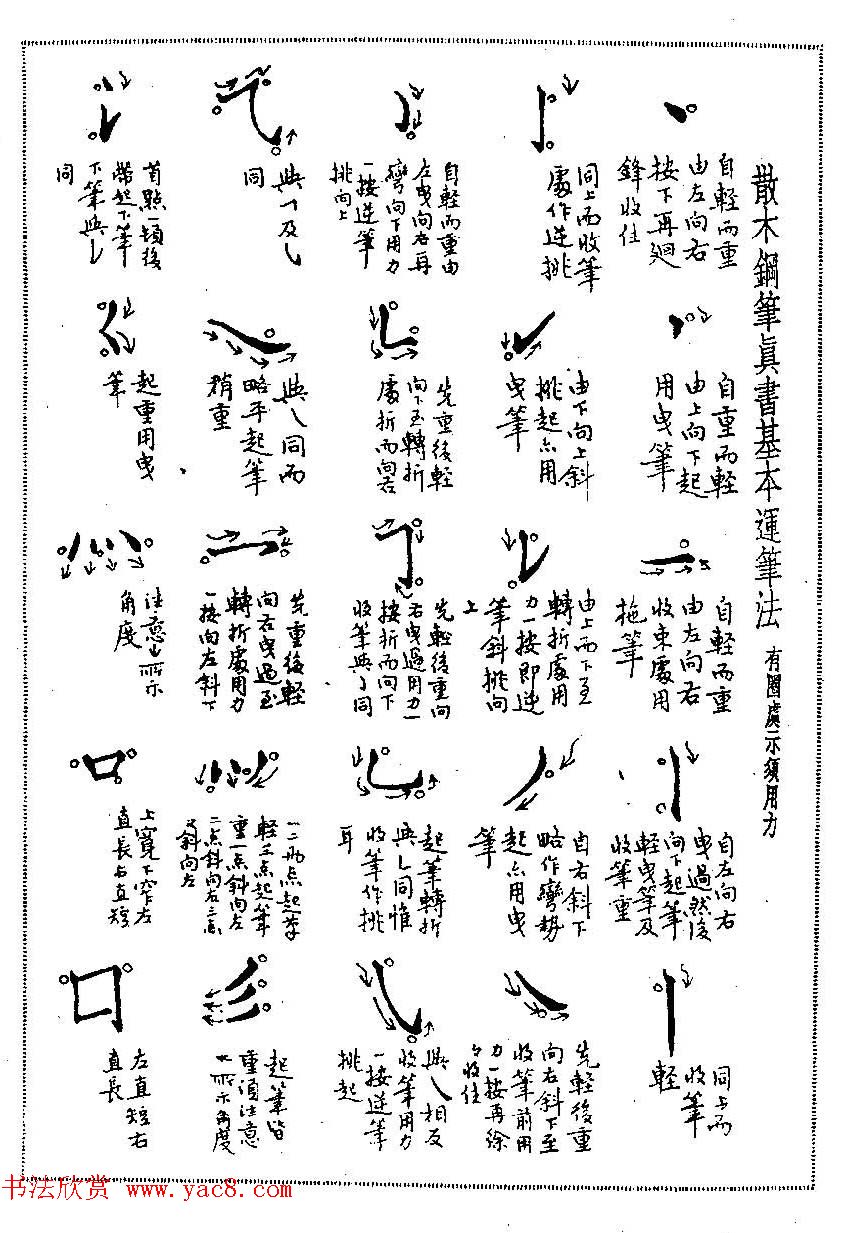 散木鋼筆眞書基本運筆法
有圈處示須用力
自輕而重
由左向右
按下再迴
鋒收住
自重而輕
由上向下起
用曳筆
自輕而重
由左向右
收束處用
拖筆
自左向右
曳過然後
向下起筆
輕曳筆及
收筆重
同上而
收筆
輕
同上而收筆
處作逆挑
由下向上斜
挑起亦用
曳筆
由上而下至
轉折處用
力一按即逆
筆斜挑向
上
自右斜下
略作彎勢
起亦用曳
筆
先輕後重
向右斜下至
收筆前用
力一按再徐
々收住
自輕而重由
左曳向右再
彎向下用力
一按逆筆
挑向上
先重後輕
向下至轉折
處折而向右
先輕後重向
右曳過用力一
按折而向下
收筆與亅同
起筆轉折
與乚同惟
收筆作挑
耳
與㇏相反
收筆用力
一按逆筆
挑起
與㇇及㇂
同
與㇏同而
略平起筆
稍重
先重後輕
向右曳過至
轉折處用力
一按向左斜下
一二兩点起筆
輕三点起筆
重一点斜向左
二点斜向右三点
又斜向左
起筆皆
重須注意
所示角度
首點一頓後
帶起下筆
下筆與㇙
同
起重用曳
筆
注意所示
角度
上寬下窄左
直長右直短
左直短右
直長
书法欣赏 www.yac8.com